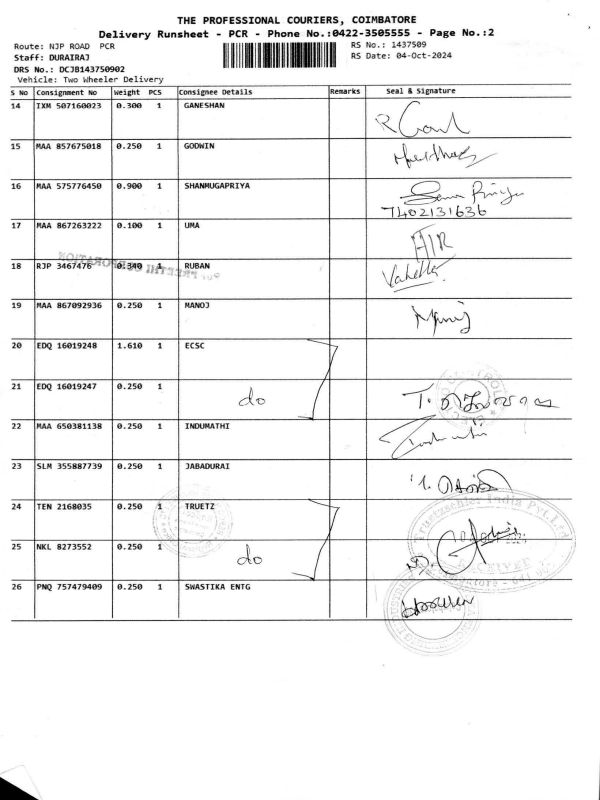 THE PROFESSIONAL COURIERS, COIMBATORE
Delivery Runsheet - PCR - Phone No.:0422-3505555 - Page No.:2
Route: NJP ROAD PCR
RS No.: 1437509
Staff: DURAIRAJ
RS Date: 04-Oct-2024
DRS No.: DCJB143750902
Vehicle: Two Wheeler Delivery
S No Consignment No Weight PCS Consignee Details Remarks Seal & Signature
14 IXM 507160023 0.300 1 GANESHAN
15 MAA 857675018 0.250 1 GODWIN
16 MAA 575776450 0.900 1 SHANMUGAPRIYA
7402131636
17 MAA 867263222 0.100 1 UMA
18 RJP 3467476 0.340 1 RUBAN
19 MAA 867092936 0.250 1 MANOJ Manoj
20 EDQ 16019248 1.610 1 ECSC
21 EDQ 16019247 0.250 1 do
22 MAA 650381138 0.250 1 INDUMATHI
23 SLM 355887739 0.250 1 JABADURAI
24 TEN 2168035 0.250 1 TRUETZ
25 NKL 8273552 0.250 1 do
26 PNQ 757479409 0.250 1 SWASTIKA ENTG